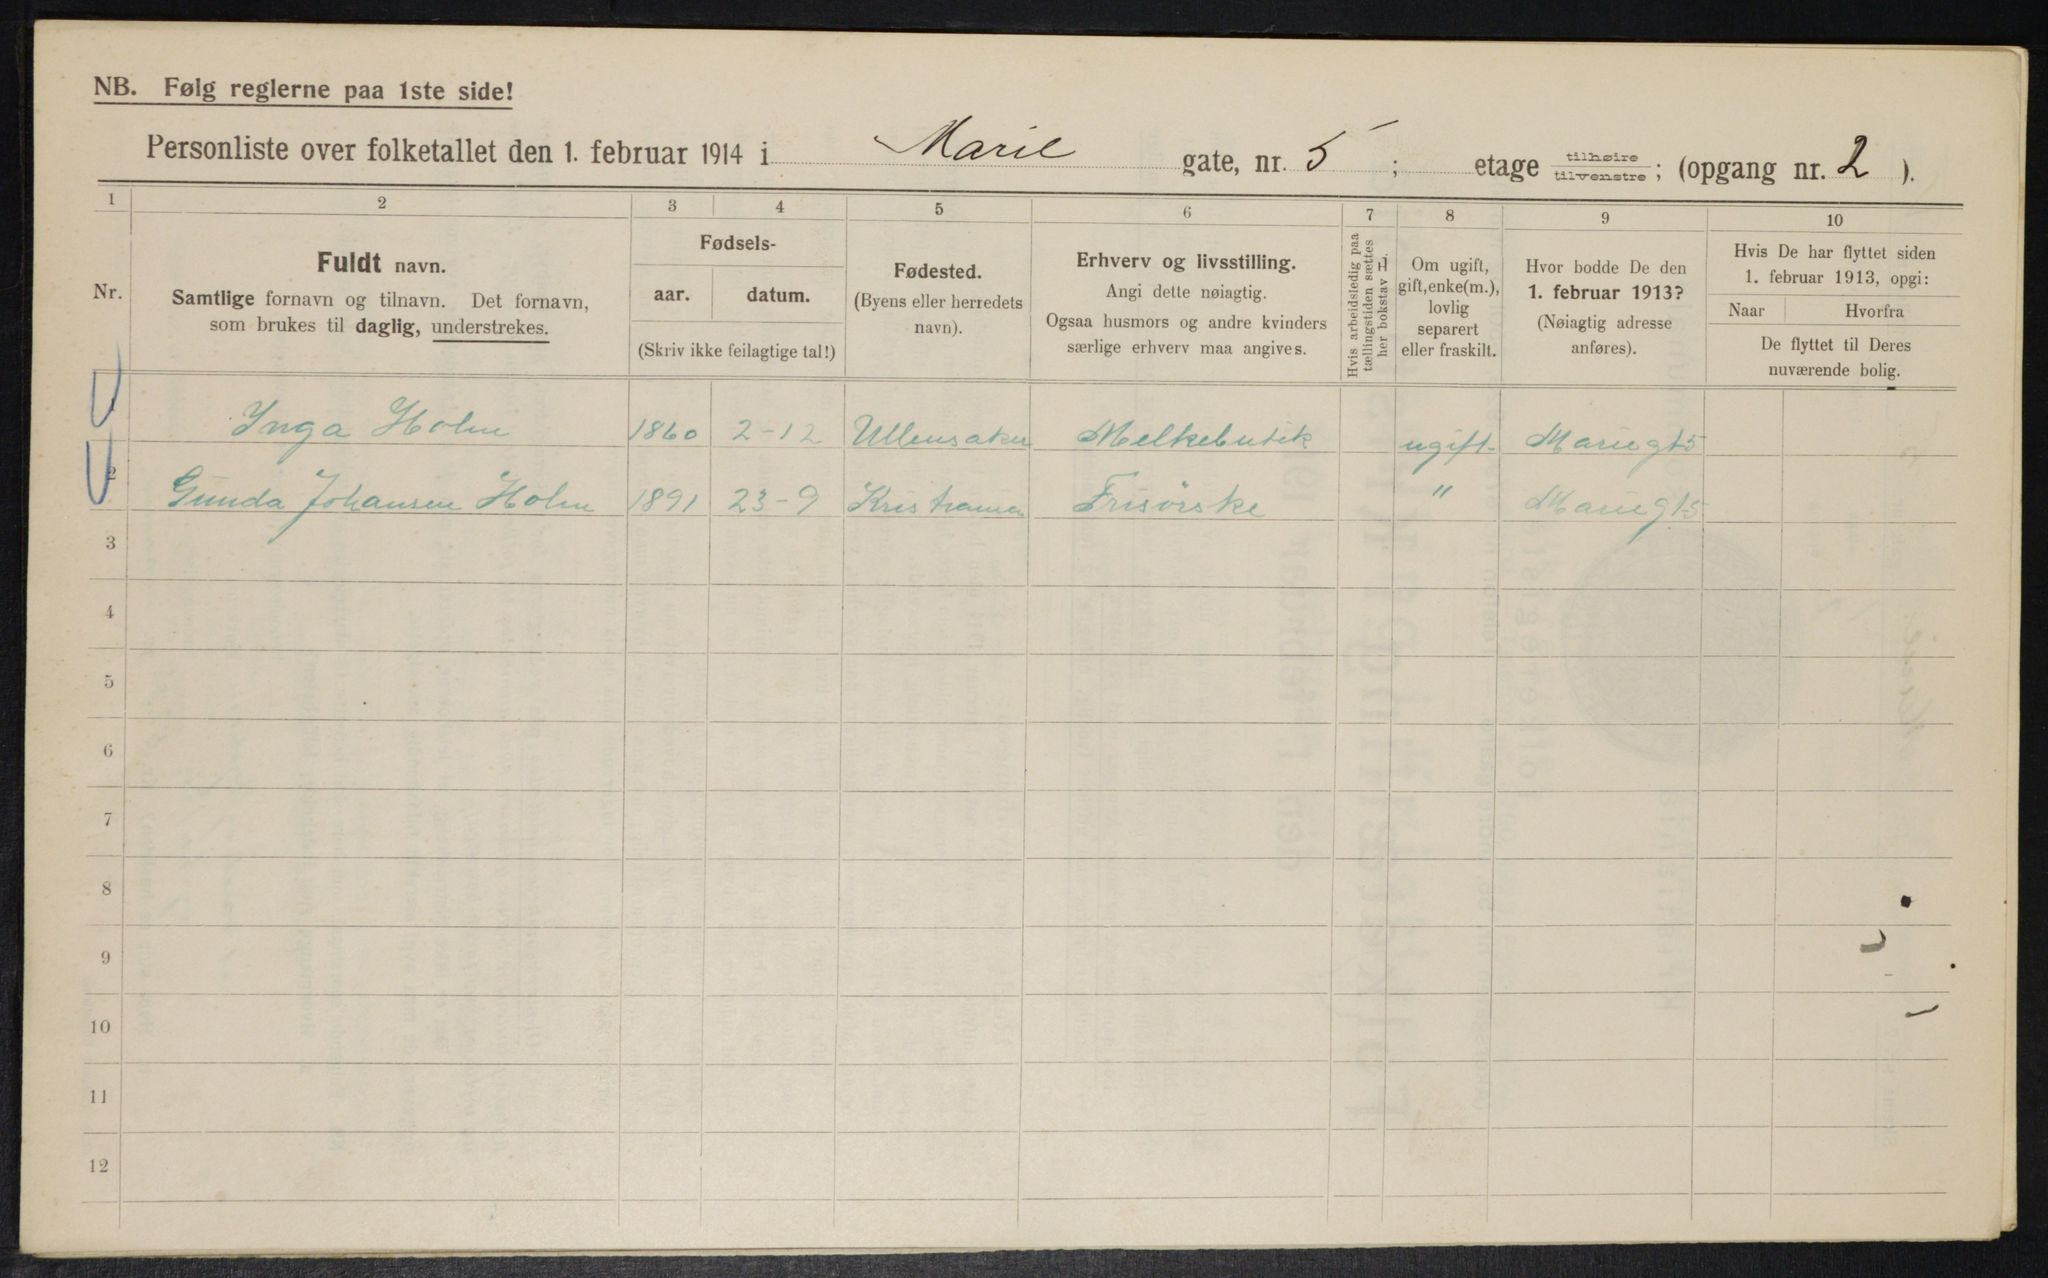 NB. Følg reglerne paa 1ste side!
Personliste over folketallet den 1. februar 1914 i Marie gate, nr. 5 ; etage tilhøire tilvenstre ; (opgang nr. 2 ).
1 2 3 4 5 6 7 8 9 10
Nr.
Fuldt navn.
Samtlige fornavn og tilnavn. Det fornavn,
som brukes til daglig, understrekes.
Fødsels-
aar. datum.
(Skriv ikke feilagtige tal!)
Fødested.
(Byens eller herredets
navn).
Erhverv og livsstilling.
Angi dette nøiagtig.
Ogsaa husmors og andre kvinders
særlige erhverv maa angives.
Hvis arbeidsledig paa
tællingstiden sættes
her bokstav H.
Om ugift,
gift, enke(m.),
lovlig
separert
eller fraskilt.
Hvor bodde De den
1. februar 1913?
(Nøiagtig adresse
anføres).
Hvis De har flyttet siden
1. februar 1913, opgi:
Naar Hvorfra
De flyttet til Deres
nuværende bolig.
1 Inga Holm 1860 2-12 Ullensaker Melkebutik ugift Mariegt 5
2 Gunda Johansen Holm 1891 23-9 Kristiania Frisørske " Mariegt 5
3
4
5
6
7
8
9
10
11
12